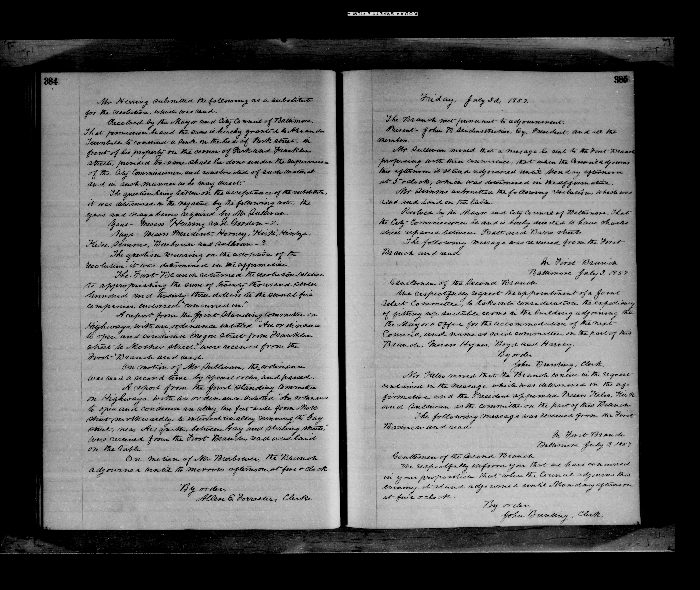 384
Mr Herring submitted the following as a substitute
for the resolution, which was read.
Resolved by the Mayor and City Council of Baltimore,
That permission be and the same is hereby granted to Alexander
to construct a in the bed of Park street, in
front of his property on the corner of Park and Franklin
streets, provided the same shall be done under the supervision
of the City Commissioner and constructed of such material
and in such manner as he may direct.
The question being taken on the acceptance of the substitute,
it was determined in the negative by the following vote, the
yeas and nays being required by Mr Sullivan.
Yeas - Messrs Herring and - 2.
Nays - Messrs President, Harvey,
and Sullivan - 7
The question recurring on the adoption of the
resolution, it was determined in the affirmative.
The First Branch returned the resolution relative
to appropriating the sum of twenty thousand seven
hundred and twenty three dollars to the
companies, endorsed "concurred in."
A report from the Joint Standing Committee on
Highways with an ordinance entitled An ordinance
to open and condemn Oregon Street from Franklin
street to Mosher street" were received from the
First Branch and read.
On motion of Mr Sullivan, the ordinance
was read a second time by special order, and passed.
A report from the Joint Standing Committee
on Highways with an ordinance entitled An ordinance
to open and condemn an alley ten feet wide from Mott
street, northwardly, to intersect an alley running to Gay
street, near Ais between Gay and Stirling streets,"
was received from the First Branch, read and laid
on the table.
On motion of Mr the Branch
adjourned until to morrow afternoon at five o clock
By order
Allen E. Forrester, Clerk
385
Friday July 3d, 1857.
The Branch met pursuant to adjournment.
Present - John T. Esq. President and all the
members.
Mr Sullivan moved that a message be sent to the First Branch
proposing with their concurrence, that when the Council adjourns
this afternoon it stand adjourned until Monday afternoon
at 5 o'clock, which was determined in the affirmative.
Mr Simms submitted the following resolution which was
read and laid on the table.
Resolved by the Mayor and City Council of Baltimore, That
the City Commissioner be and is hereby directed to have
street repaved between Pratt and streets.
The following message was received from the First
Branch and read
In First Branch
Baltimore July 3. 1857
Gentlemen of the Second Branch
We respectfully request the appointment of a joint
select Committee, to take into consideration the expediency
of fitting up suitable rooms in the building adjoining the
the Mayor's Office for the accommodation of the next
Council, and name as said committee, on the part of this
Branch, Messrs Hynes, Boyd and Harvey.
By order
John Bunting, Clerk
Mr moved that the Branch concur in the request
contained in the message which was determined in the af-
firmative and the President appointed Messrs
and as the committee on the part of this Branch
The following message was received from the First
Branch and read
In First Branch
Baltimore July 3 1857
Gentlemen of the Second Branch
We respectfully inform you that we have concurred
in your proposition that when the Council adjourns this
evening it stand adjourned until Monday afternoon
at five o'clock.
By order
John Bunting, Clerk